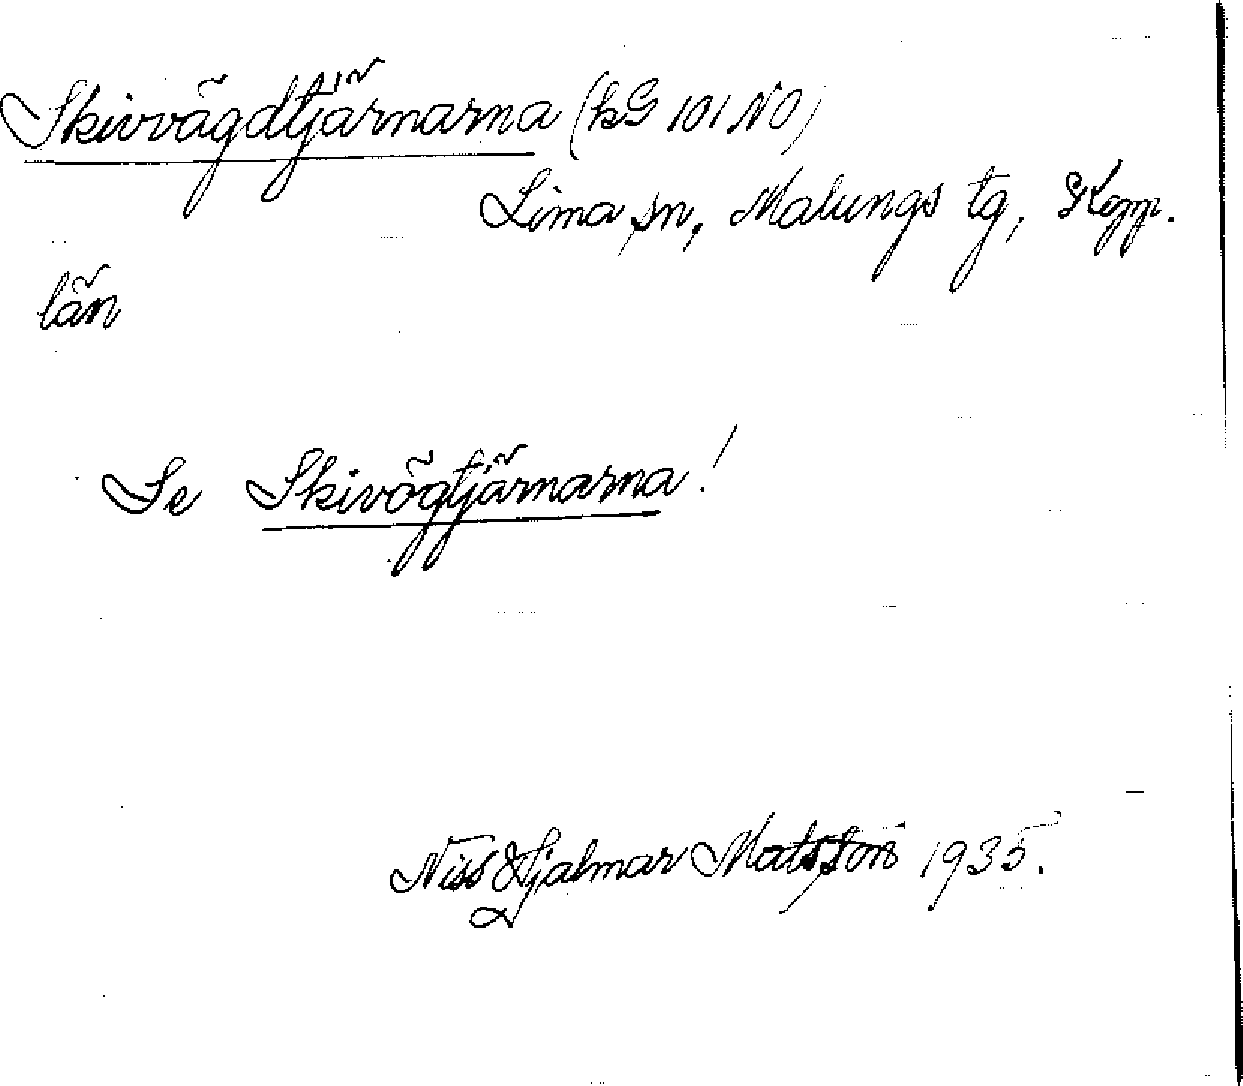 Skivvägdtjärnarna (kG 101 NO)
Lima sn, Malungs tg, Kopp.
län
Se Skivögtjärnarna!
Niss Hjalmar Matsson 1935.